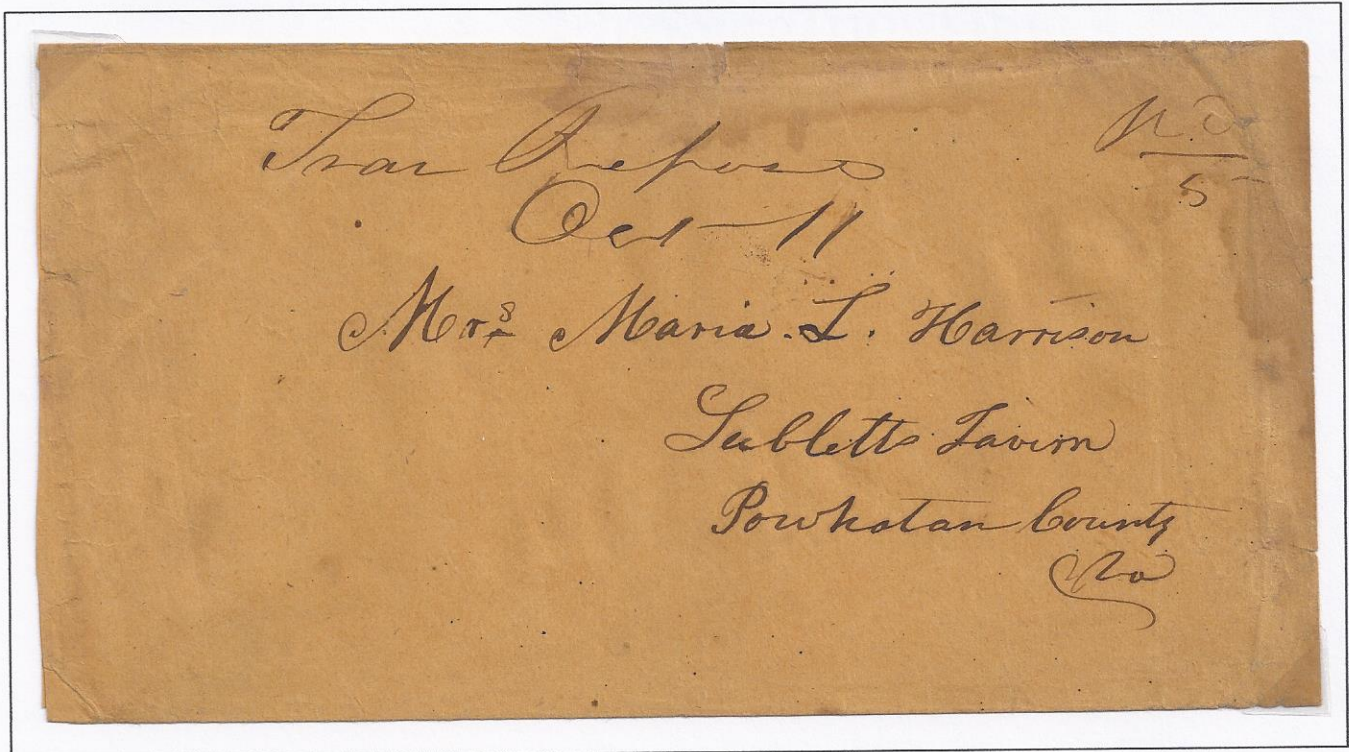 Pd
5
Oct 11
Mrs Maria. L. Harrison
Subletts Tavern
Powhatan County
Va